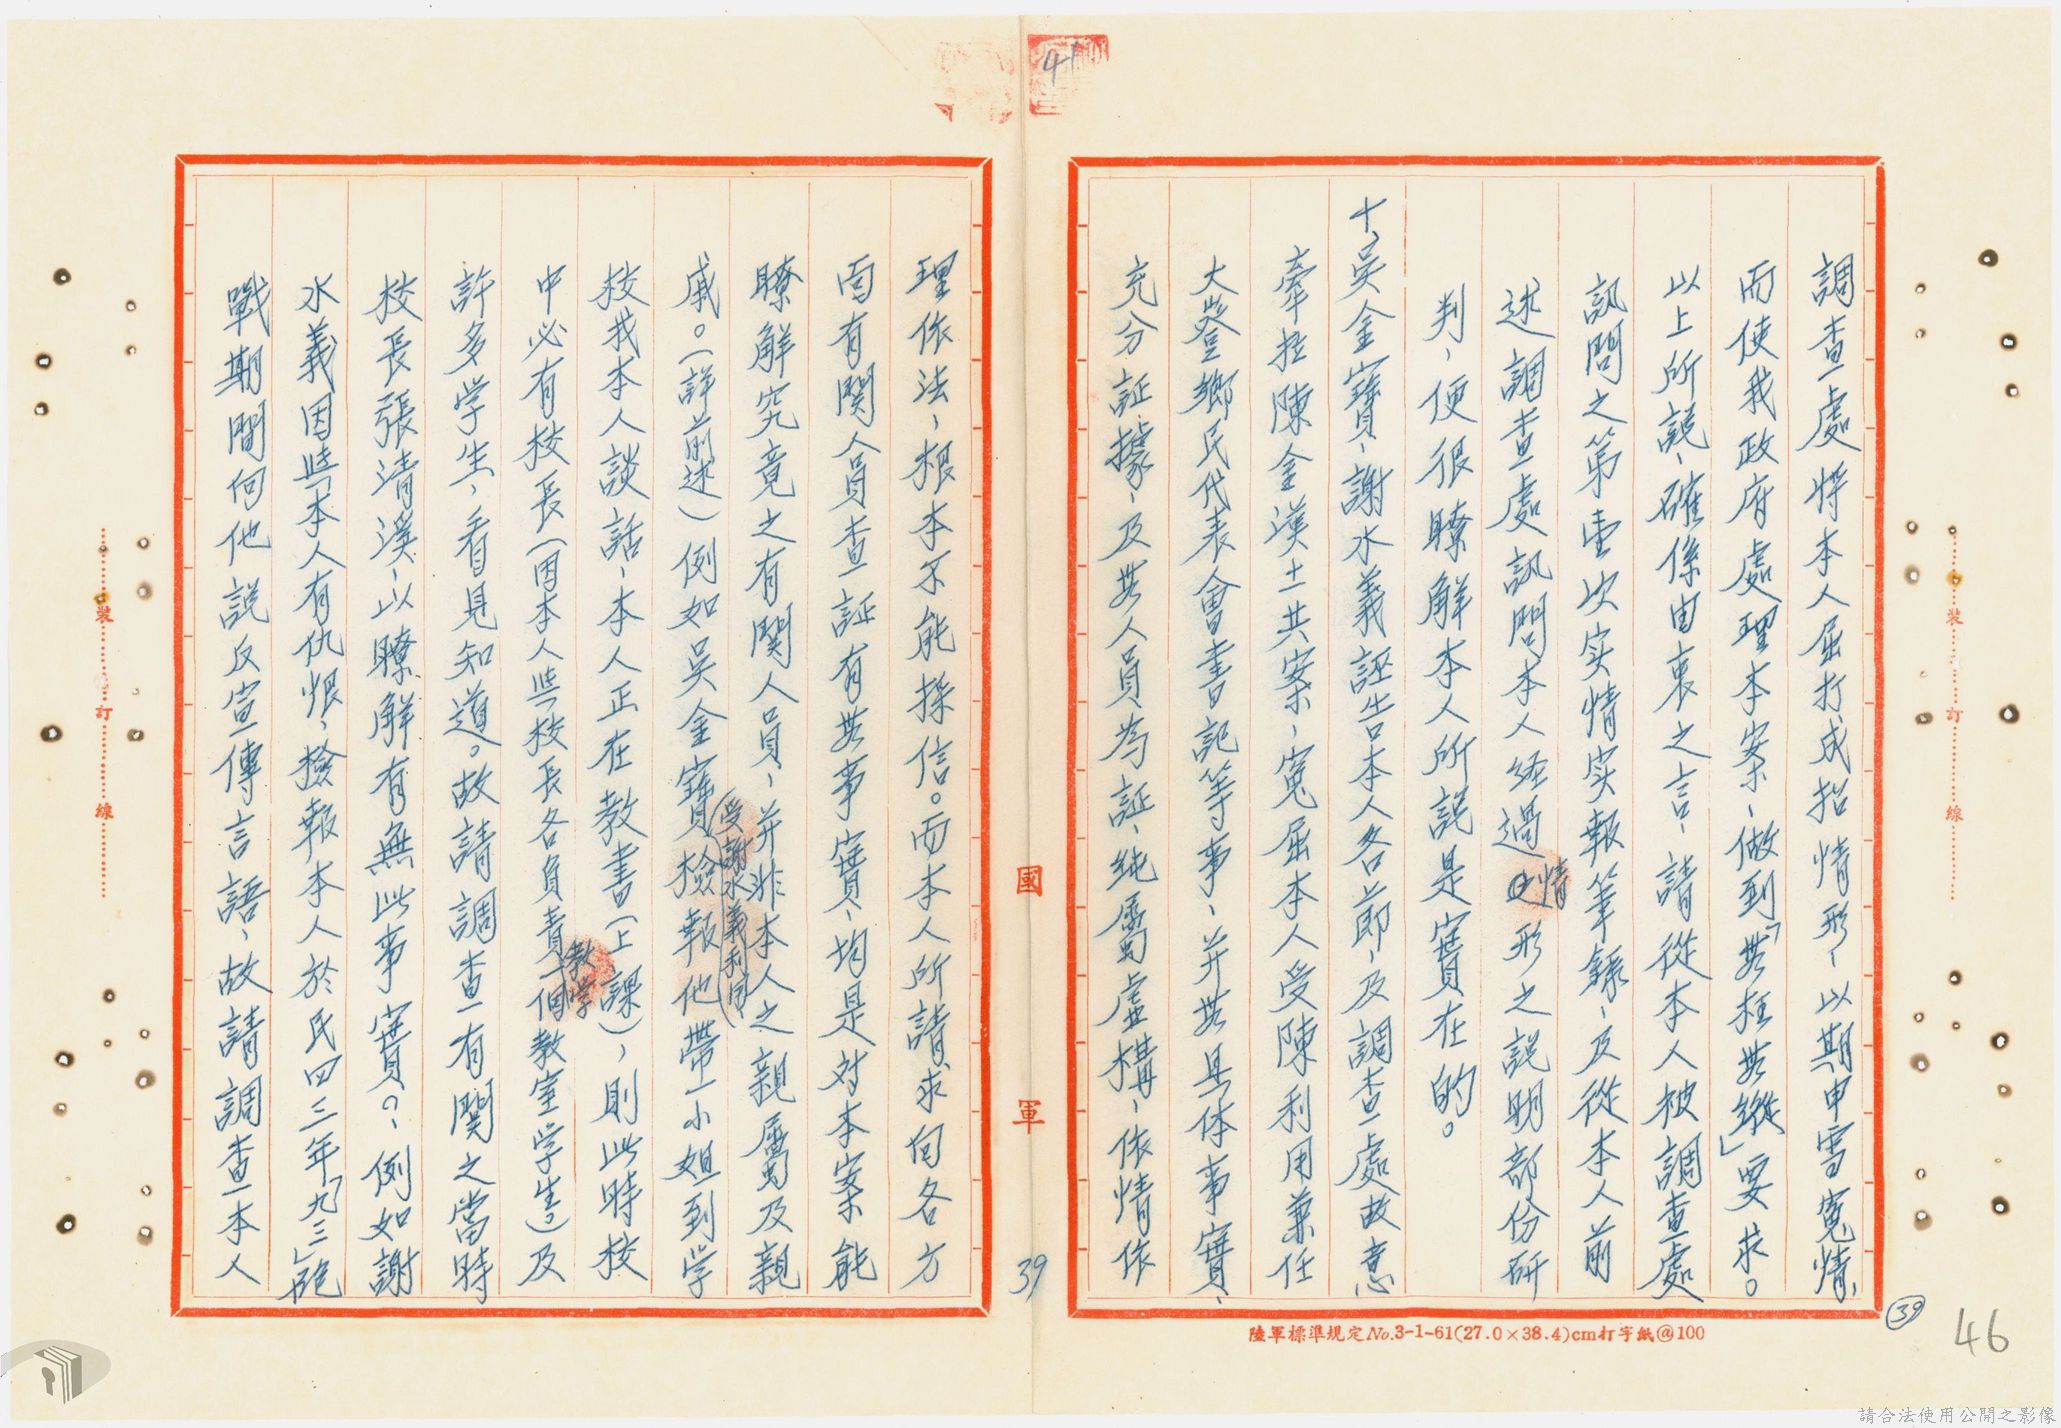 調查處將本人屈打成招情形、以期申雪冤情、
而使我政府處理本案、做到「毋枉毋縱」要求。
以上所說、確係由衷之言、請從本人被調查處
訊問之第壹次实情实報筆錄、及從本人前
述調查處訊問本人经過情形之説明部份研
判、便很瞭解本人所説是實在的。
十、吳金寶、謝水義誣告本人各節、及調查處故意
牽拉陳金漢士共案、冤屈本人受陳利用兼任
大登鄉民代表會書記等事、并無具体事實、
充分証據、及無人員為証、純屬虛構、依情依
理依法、根本不能採信。而本人所請求向各方
面有関人員查証有無事實、均是对本案能
瞭解究竟之有関人員、并非本人之親屬及親
戚。(詳前述)例如吳金寶(受謝水義利用)檢報他帶一小姐到学
校找本人談話、本人正在教書(上課)，則此時校
中必有校長(因本人些校長各負責一個教室学生教学。)及
許多学生、看見知道。故請調查有関之當時
校長張清漢、以瞭解有無此事實？、例如謝
水義因與本人有仇恨、檢報本人於民四三年「九三」砲
戰期間向他説反宣傳言語、故請調查本人
國軍
裝
訂
線
裝
訂
線
41
39
39
46
陸軍標準規定No.3-1-61(27.0×38.4)cm打字紙@100
請合法使用公開之影像